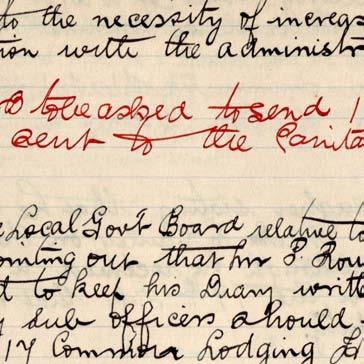 to the necessity of increas
ion with the administr
to be asked to send 1
sent to the Sanita
Local Gov't Board relative to
ointing out that Mr P. Rou
to keep his Diary writt
sub officers should
17 Common Lodging H